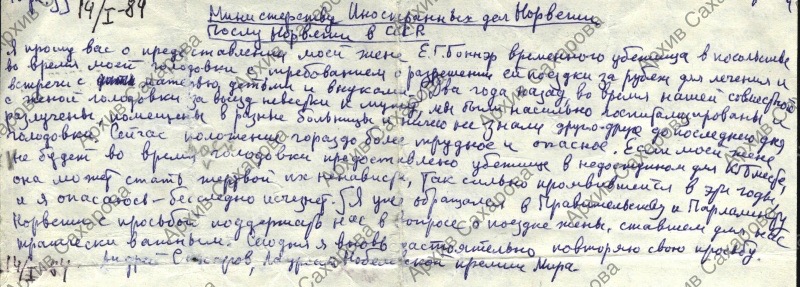 14/I-84
Министерству Иностранных дел Норвегии
Послу Норвегии в СССР
Я прошу вас о предоставлении моей жене Е.Г.Боннэр временного убежища в посольстве
во время моей голодовки с требованием о разрешении ей поездки за рубеж для лечения и
встречи с матерью, детьми и внуками. Два года назад, во время нашей совместной
с женой голодовки за выезд невестки к мужу, мы были насильно госпитализированы и
разлучены, помещены в разные больницы и ничего не знали друг о друге до последнего дня
голодовки. Сейчас положение гораздо более трудное и опасное. Если моей жене
не будет во время голодовки предоставлено убежище в недоступном для КГБ месте,
она может стать жертвой их ненависти, так сильно проявившейся в эти годы,
и я опасаюсь - бесследно исчезнет. Я уже обращался к Правительству и Парламенту
Норвегии с просьбой поддержать нас в вопросе о поездке жены, ставшем для нас
трагически важным. Сегодня я вновь настоятельно повторяю свою просьбу.
14/I-84 Андрей Сахаров, Лауреат Нобелевской премии Мира.
Архив Сахарова